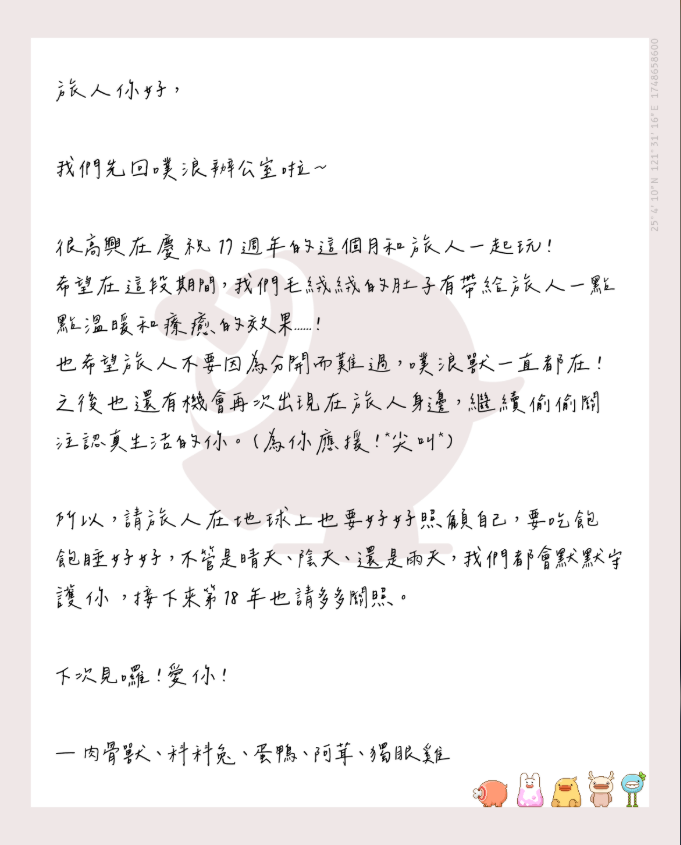 旅人你好，
我們先回噗浪辦公室啦～
很高興在慶祝17週年的這個月和旅人一起玩！
希望在這段期間，我們毛絨絨的肚子有帶給旅人一點
點溫暖和療癒的效果……！
也希望旅人不要因為分開而難過，噗浪獸一直都在！
之後也還有機會再次出現在旅人身邊，繼續偷偷關
注認真生活的你。(為你應援！"尖叫")
所以，請旅人在地球上也要好好照顧自己，要吃飽
飽睡好好，不管是晴天、陰天、還是雨天，我們都會默默守
護你，接下來第18年也請多多關照。
下次見囉！愛你！
— 肉骨獸、料料兔、蛋鴨、阿茸、獨眼雞
25°4'10"N 121°31'16"E 1748658600